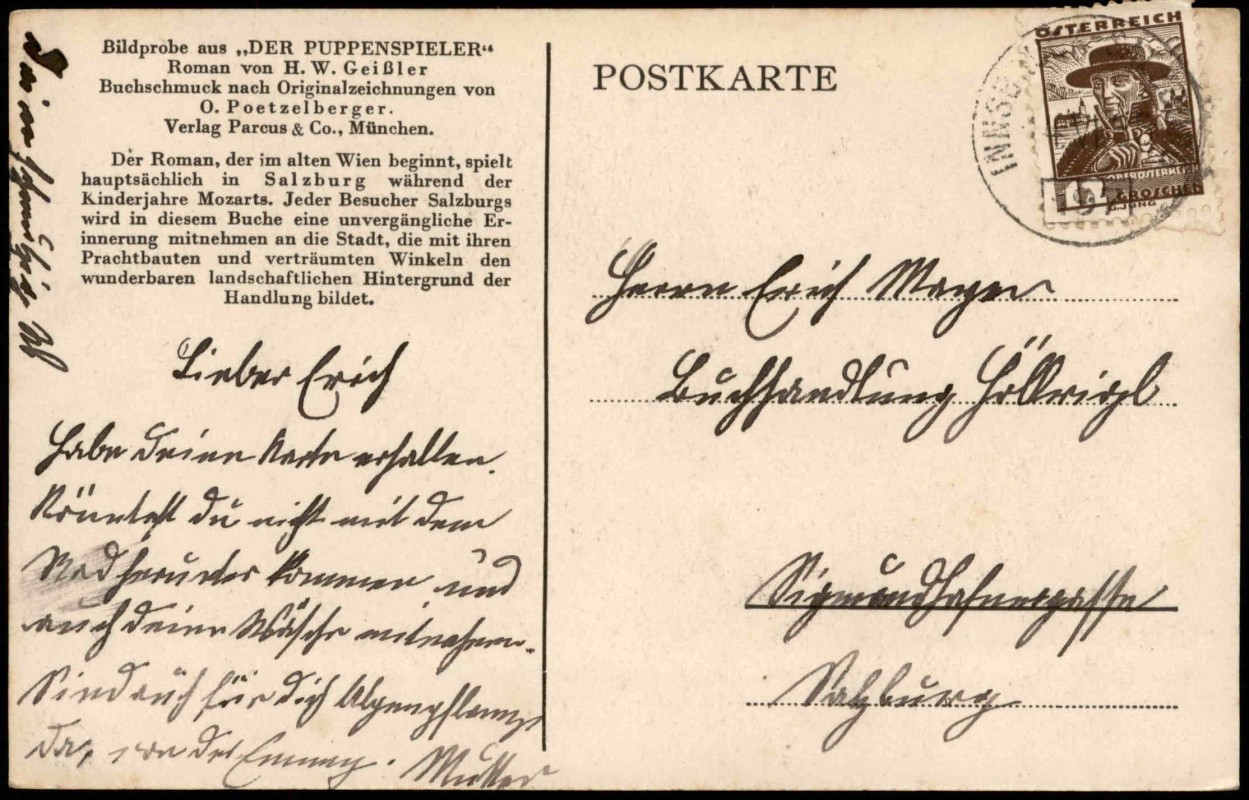 Bildprobe aus „DER PUPPENSPIELER“
Roman von H. W. Geißler
Buchschmuck nach Originalzeichnungen von
O. Poetzelberger.
Verlag Parcus & Co., München.
Der Roman, der im alten Wien beginnt, spielt
hauptsächlich in Salzburg während der
Kinderjahre Mozarts. Jeder Besucher Salzburgs
wird in diesem Buche eine unvergängliche Er-
innerung mitnehmen an die Stadt, die mit ihren
Prachtbauten und verträumten Winkeln den
wunderbaren landschaftlichen Hintergrund der
Handlung bildet.
Lieber Erich
Habe deine Karte erhalten.
Könntest du nicht mit dem
Rad herunter kommen und
auch deine Wäsche mitnehmen.
Sind auch für dich Alpenpflanzen
da, von der Emmy. Mutter
POSTKARTE
ÖSTERREICH
OBERÖSTERREICH
GROSCHEN
INNSB
Herrn Erich Mayer
Buchhandlung Höllrigl
Sigmundhafnergasse
Salzburg